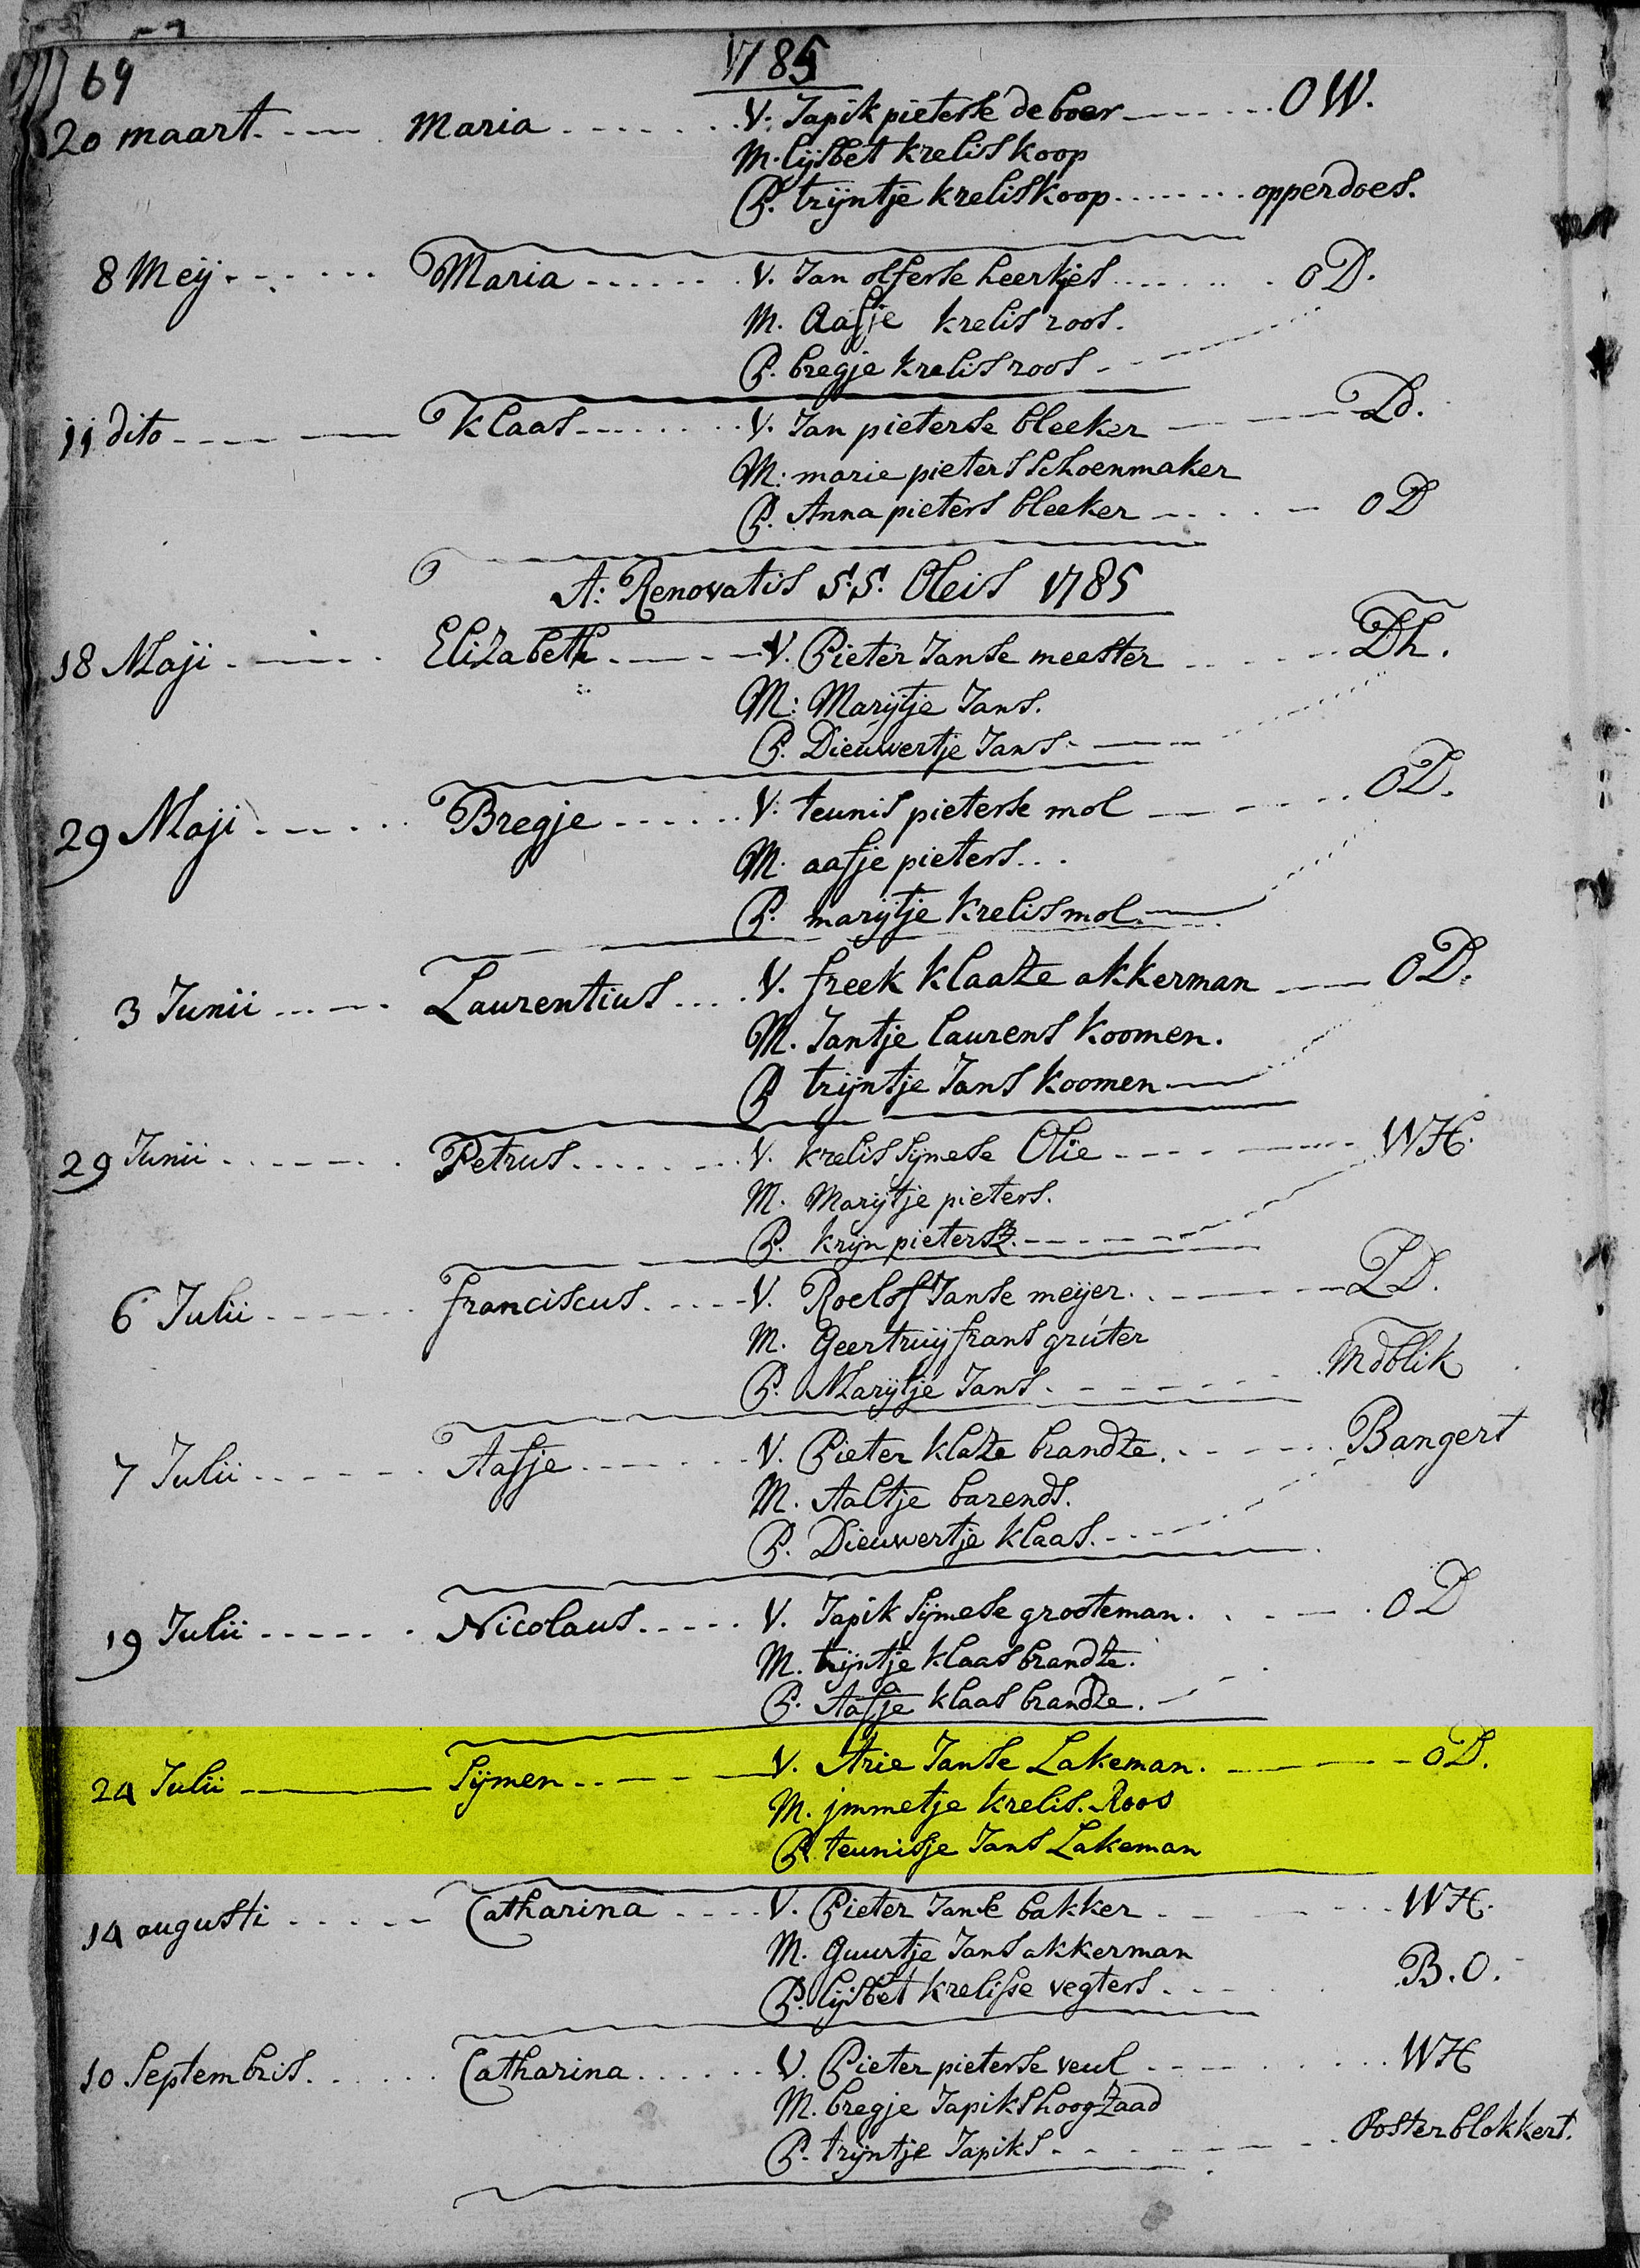 69
1785
20 maart. Maria V. Japik pieterse de boer OW.
M. lijsbet krelis koop
P. trijntje krelis koop opperdoes.
8 Meij Maria V. Jan olferse heertjes OD.
M. Aafje krelis roos.
P. bregje krelis roos
11 dito Klaas V. Jan pieterse bleeker Ld.
M: marie pieters schoenmaker
P. Anna pieters bleeker OD
A: Renovatis S.S. Oleis 1785
18 Maji Elizabeth V. Pieter Janse meester Dh.
M: Marijtje Jans.
P. Dieuwertje Jans
29 Maji Bregje V. teunis pieterse mol OD.
M. aafje pieters
P. marijtje krelis mol
3 Junii Laurentius V. freek klaaze akkerman OD.
M. Jantje laurens koomen.
P trijntje Jans koomen
29 Junii Petrus V. krelis sijmese Olie WH.
M. Marijtje pieters.
P. krijn pietersz.
6 Julii franciscus V. Roelof Janse meijer LD.
M. Geertruij frans grúter
P. Marijtje Jans Mdblik
7 Julii Aafje V. Pieter klaze brandze. Bangert
M. Aaltje barends.
P. Dieuwertje klaas.
19 Julii Nicolaus V. Japik sijmese grooteman. OD
M. trijntje klaas brandze.
P. Aafje klaas brandze.
24 Julii Sijmen V. Arie Janse Lakeman. OD.
M. jmmetje krelis. Roos
P. teunisje Jans Lakeman
14 augusti Catharina V. Pieter Janse bakker WH.
M. Guurtje Jans akkerman
P. lijsbet krelisse vegters. B.O.
10 Septembris. Catharina V. Pieter pieterse veul WH
M. bregje Japiks hoogzaad
P. trijntje Japiks Oosterblokkert.